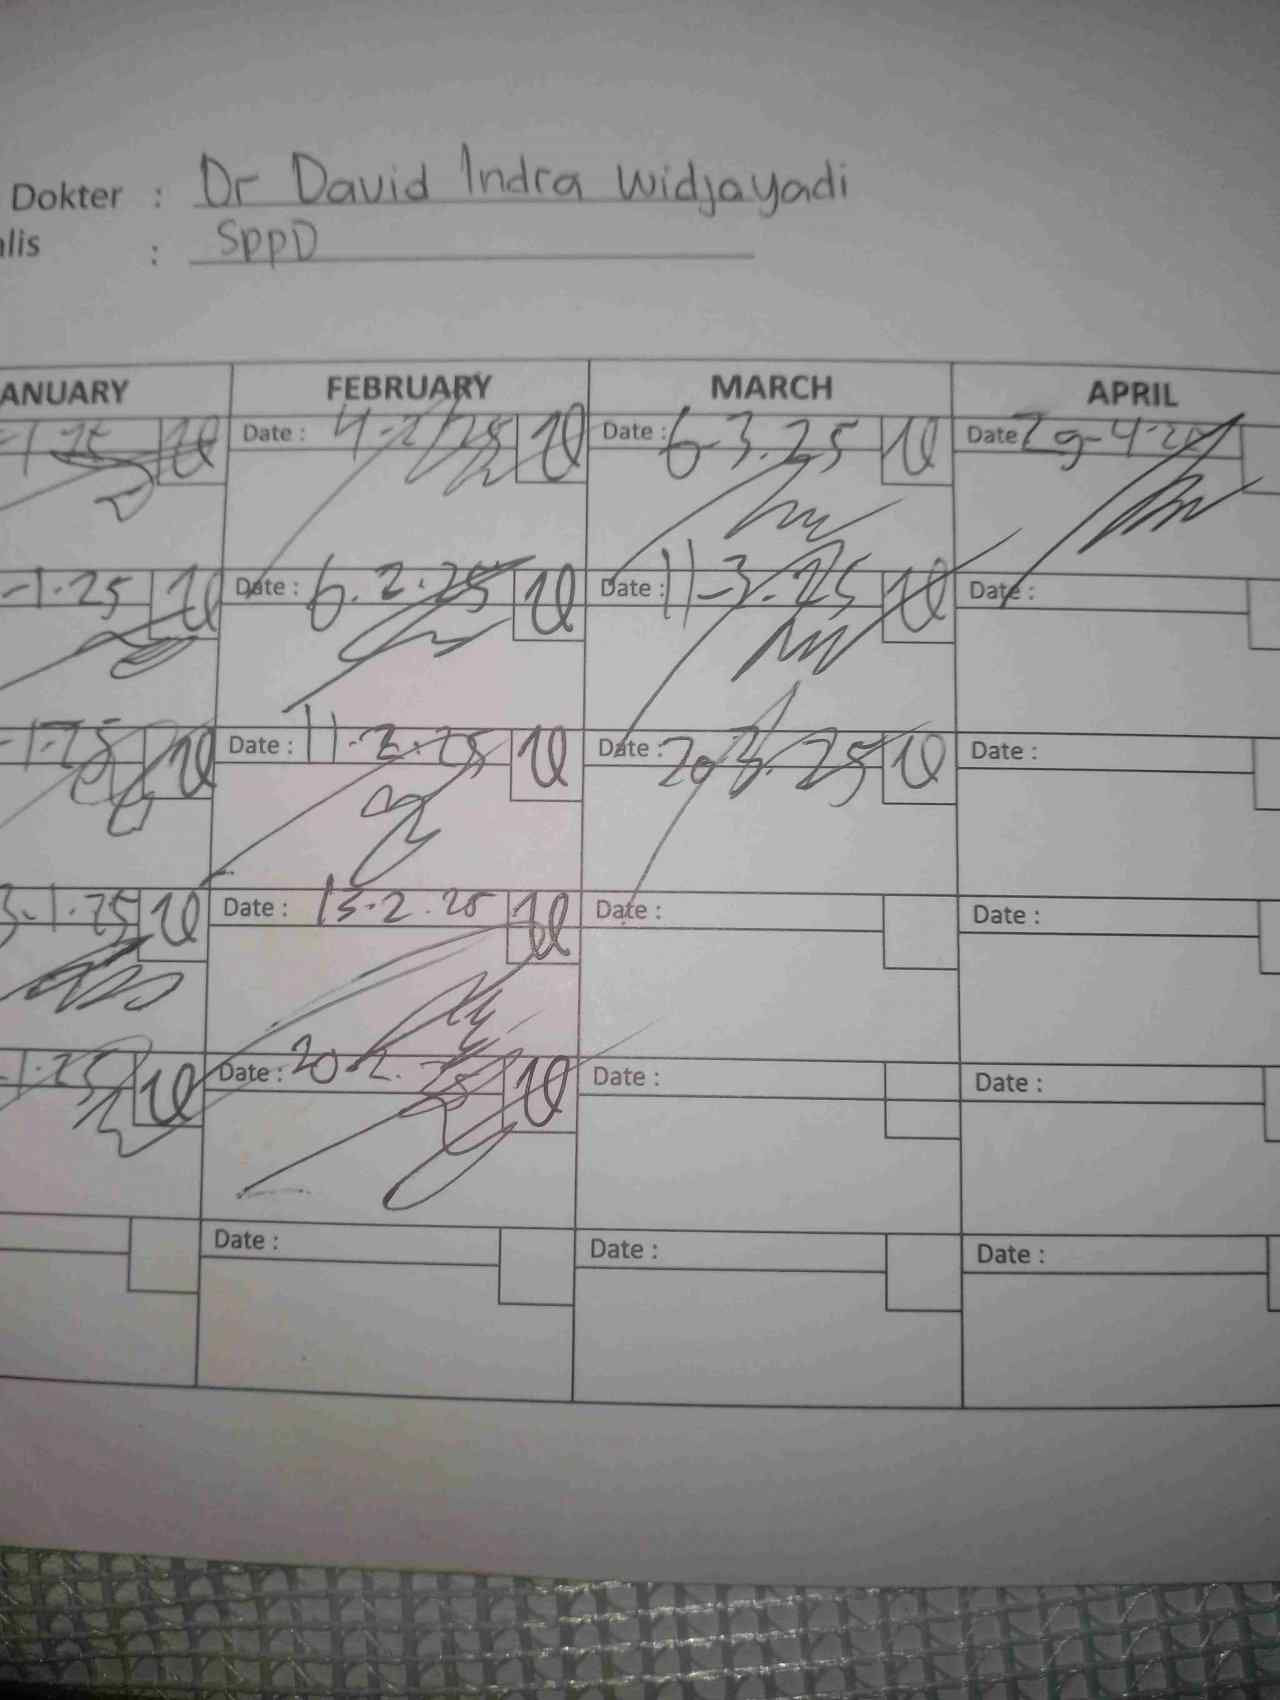 Dokter : Dr David Indra Widjayadi
alis : SppD
ANUARY FEBRUARY MARCH APRIL
-1.25 Date : 4-2-25 Date : 6-3.25 Date 29-4-25
-1.25 Date : 6.2.25 Date : 11-3.25 Date :
-1.25 Date : 11-2-25 Date : 20 3. 25 Date :
3-1.25 Date : 15-2.25 Date : Date :
-1.25 Date : 20 2. 25 Date : Date :
Date : Date : Date :